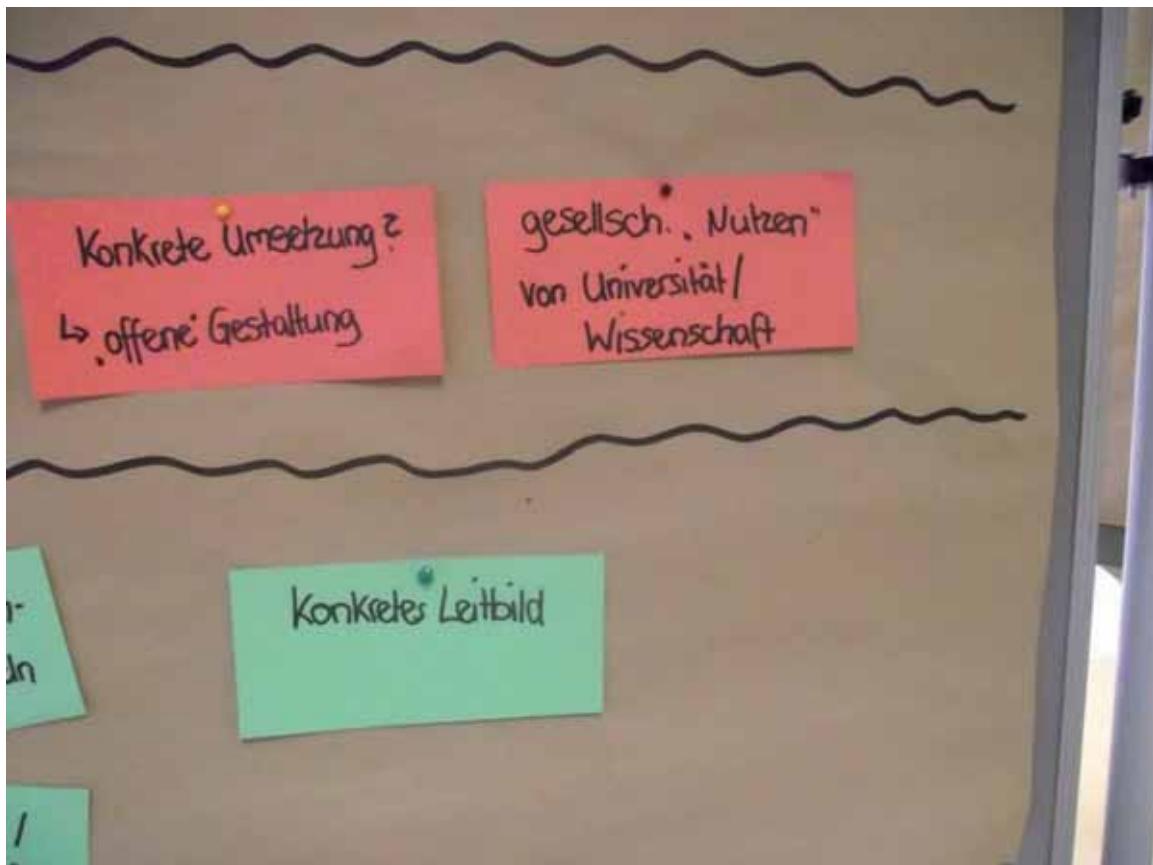 Konkrete Umsetzung?
↳ „offene“ Gestaltung
gesellsch. „Nutzen“
von Universität/
Wissenschaft
Konkretes Leitbild